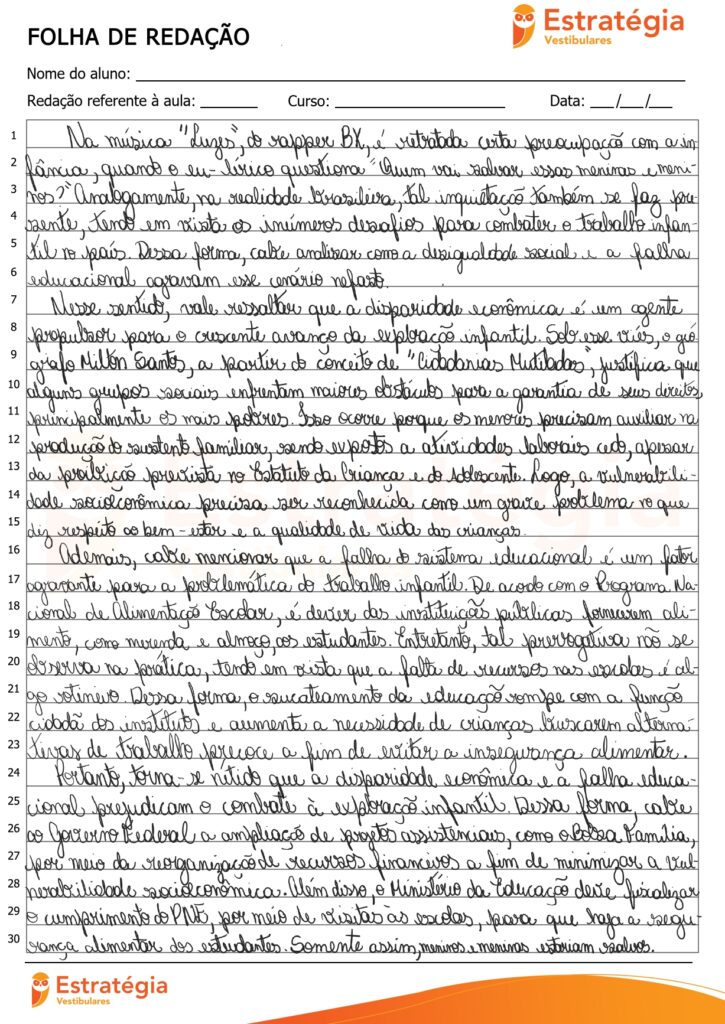 FOLHA DE REDAÇÃO
Estratégia
Vestibulares
Nome do aluno:
Redação referente à aula: Curso: Data: / /
1 Na música "Luzes", do rapper BK, é retratada certa preocupação com a in-
2 fância, quando o eu-lírico questiona "Quem vai salvar essas meninas e meni-
3 nos?" Analogamente, na realidade brasileira, tal inquietação também se faz pre-
4 sente, tendo em vista os inúmeros desafios para combater o trabalho infan-
5 til no país. Dessa forma, cabe analisar como a desigualdade social e a falha
6 educacional agravam esse cenário nefasto.
7 Nesse sentido, vale ressaltar que a disparidade econômica é um agente
8 propulsor para o crescente avanço da exploração infantil. Sob esse viés, o geó
9 grafo Milton Santos, a partir do conceito de "Cidadanias Mutiladas", justifica que
10 alguns grupos sociais enfrentam maiores obstáculos para a garantia de seus direitos,
11 principalmente os mais pobres. Isso ocorre porque os menores precisam auxiliar na
12 produção do sustento familiar, sendo expostos a atividades laborais cedo, apesar
13 da proibição prevista no Estatuto da Criança e do Adolescente. Logo, a vulnerabili-
14 dade socioeconômica precisa ser reconhecida como um grave problema no que
15 diz respeito ao bem-estar e a qualidade de vida das crianças.
16 Ademais, cabe mencionar que a falha do sistema educacional é um fator
17 agravante para a problemática do trabalho infantil. De acodo com o Programa Na-
18 cional de Alimentação Escolar, é dever das instituições públicas fornecerem ali-
19 mento, como merenda e almoço, aos estudantes. Entretanto, tal prerrogativa não se
20 observa na prática, tendo em vista que a falta de recursos nas escolas é al-
21 go rotineiro. Dessa forma, o sucateamento da educação rompe com a função
22 cidadã dos institutos e aumenta a necessidade de crianças buscarem alterna-
23 tivas de trabalho precoce a fim de evitar a insegurança alimentar.
24 Portanto, torna-se nítido que a disparidade econômica e a falha educa-
25 cional prejudicam o combate à exploração infantil. Dessa forma, cabe
26 ao Governo Federal a ampliação de projetos assistenciais, como o Bolsa Família,
27 por meio da reorganização de recursos financeiros a fim de minimizar a vul-
28 nerabilidade socioeconômica. Além disso, o Ministério da Educação deve fiscalizar
29 o cumprimento do PNE, por meio de visitas às escolas, para que haja a segu-
30 rança alimentar dos estudantes. Somente assim, meninos e meninas estariam salvos.
Estratégia
Vestibulares